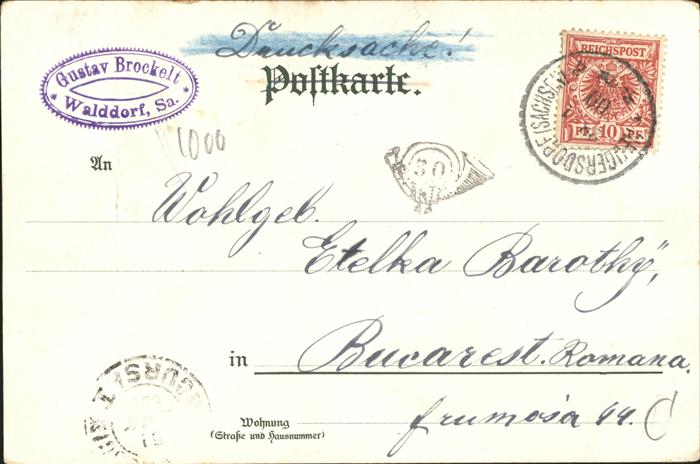 Drucksache!
Postkarte.
Gustav Brockelt
* Walddorf, Sa. *
REICHSPOST
PF. 10 PF.
1000
An
50
Wohlgeb.
Etelka Barothÿ,
in Bucarest. Romana.
Wohnung
(Straße und Hausnummer)
frumósa 44.